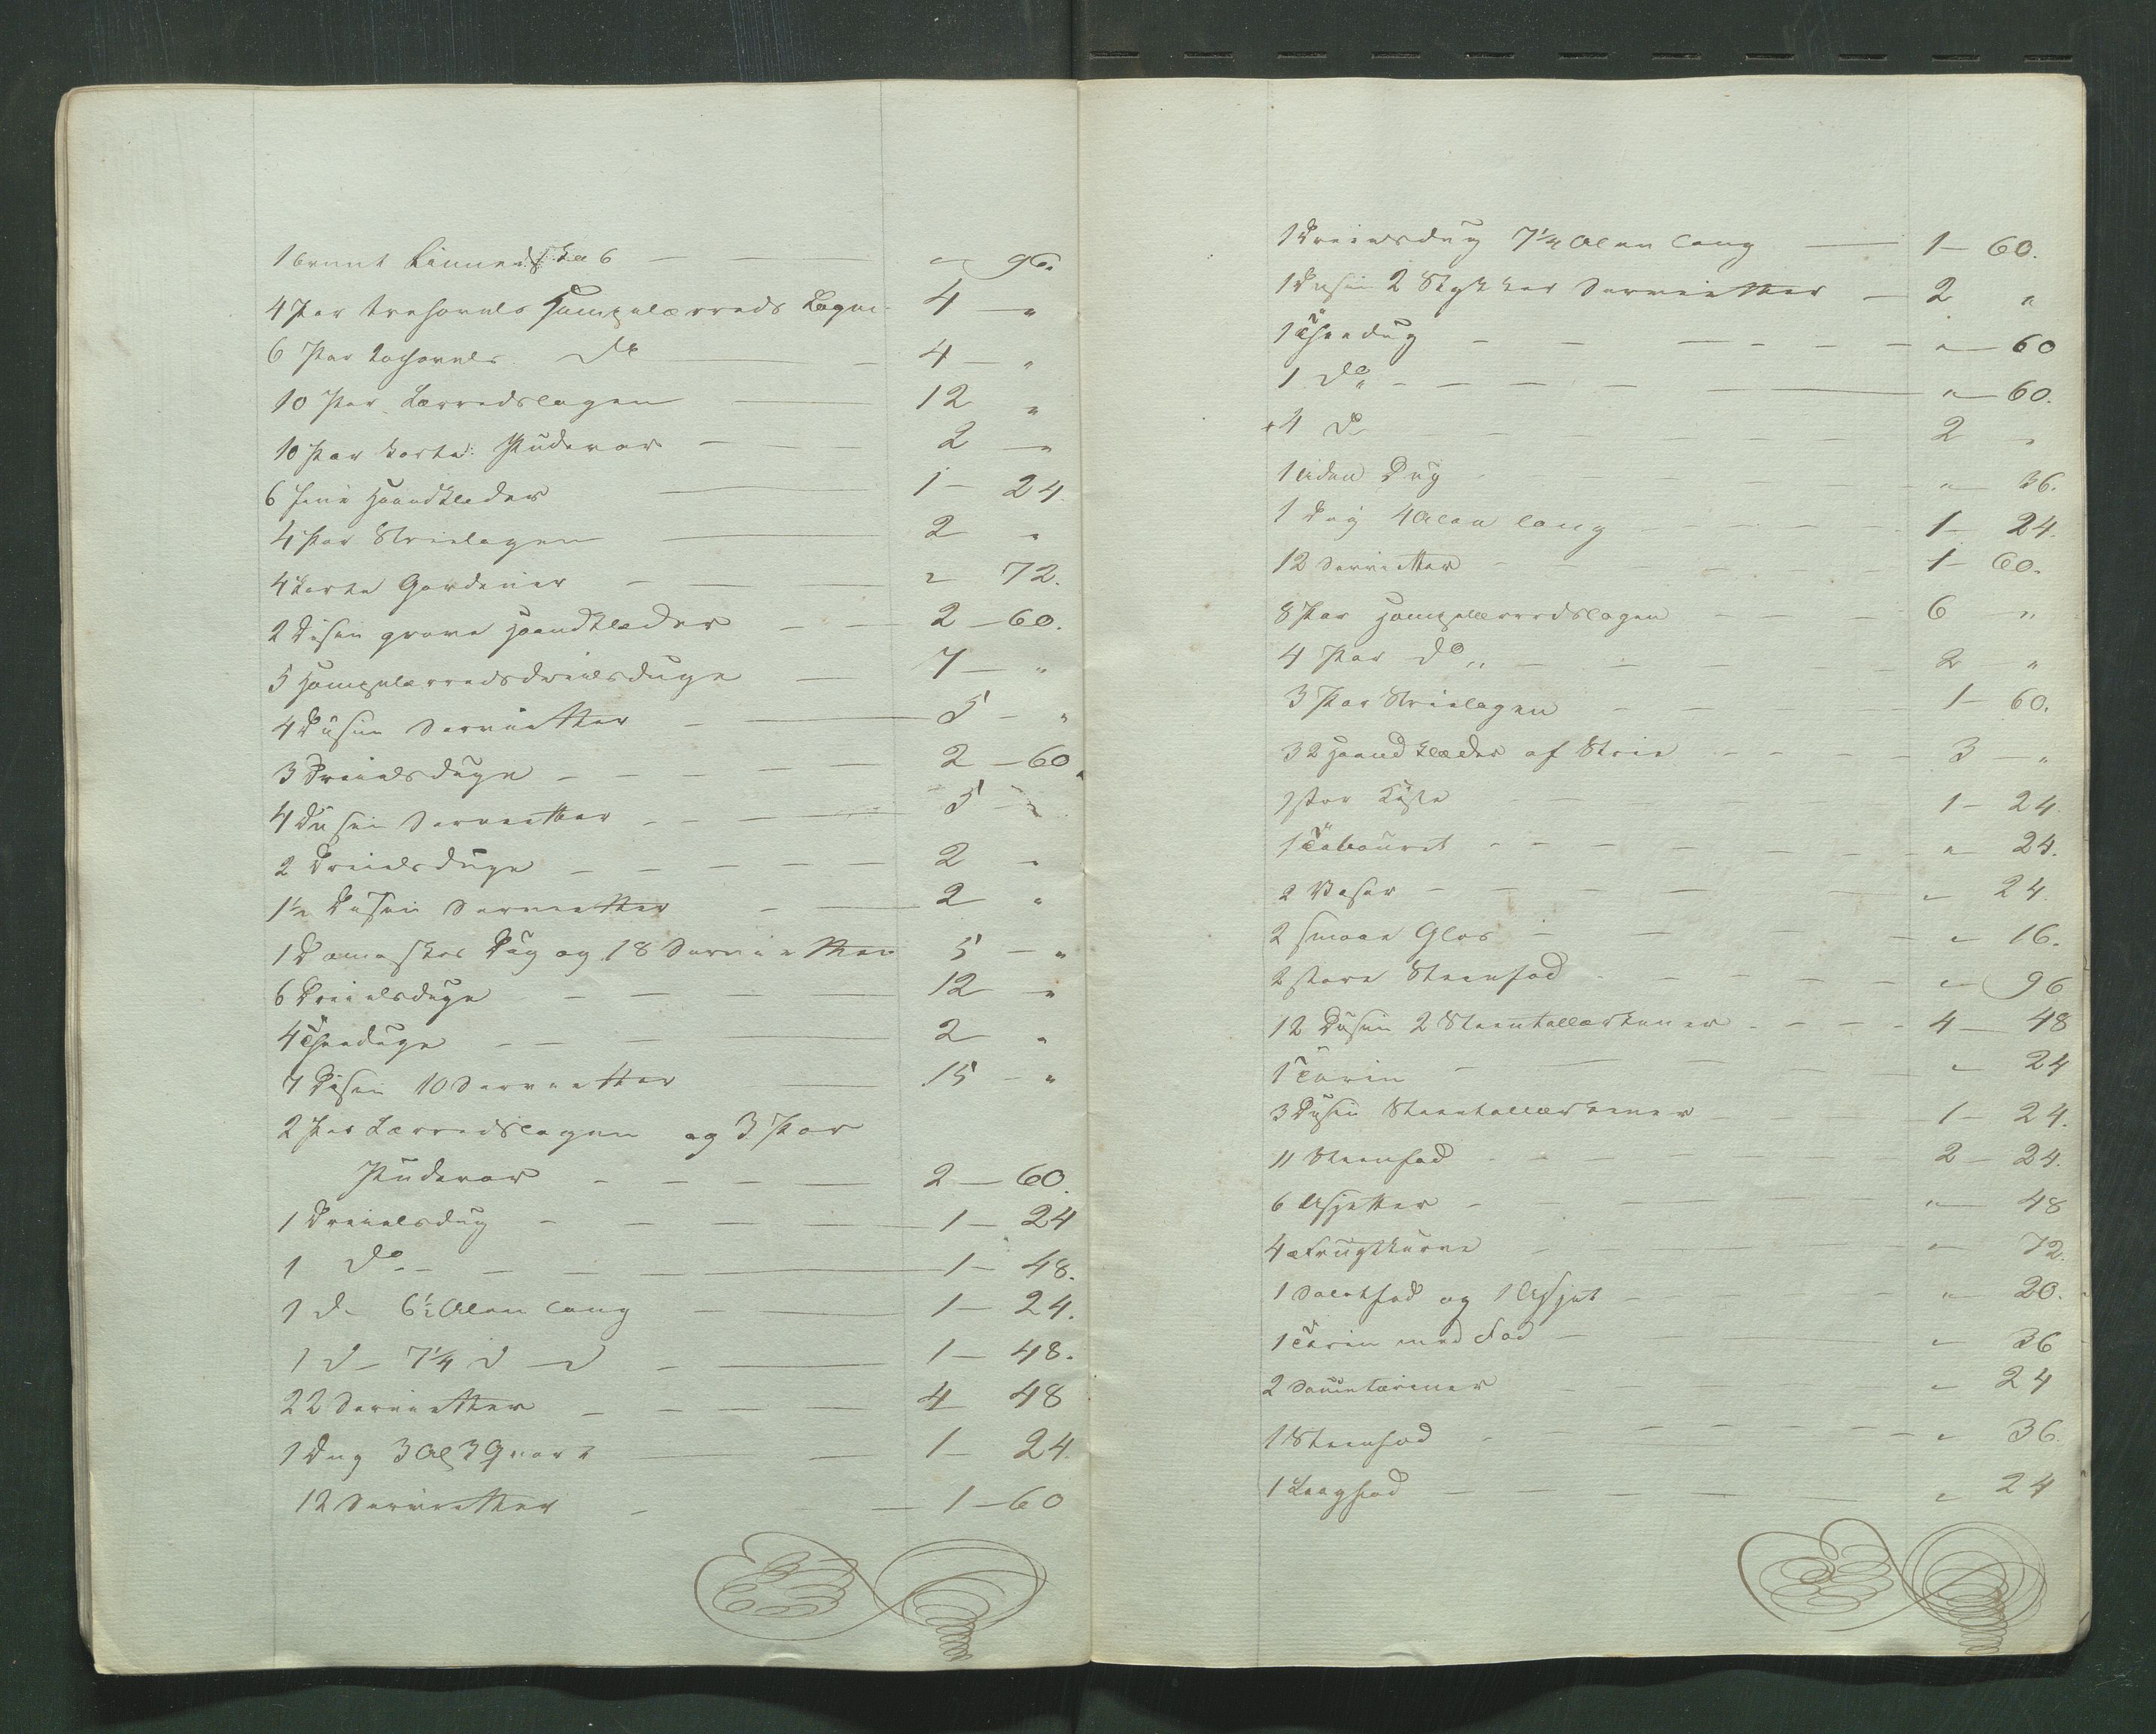 1 brunt Linnedskab — — „ 96.
4 Par trefouls Hampelærreds Lagen 4 — „
6 Par tofouls do — 4 — „
10 Par Lærredslagen — 12 „
10 Par korte Pudevar — — 2 — „
6 fine Haandklæder — 1 — 24.
4 Par Strielagen — 2 „
4 korte Gardiner — — „ 72.
2 Dusin grove Haandklæder — — 2 — 60.
5 Hampelærredsdreielsduge — 7 — „
4 Dusin Servietter — — 5 — „
3 Dreielsduge — — — — 2 — 60.
4 Dusin Servietter — — — 5 — „
2 Dreielsduge — — — — 2 — „
1½ Dusin Servietter — — 2 „
1 Damaskes Dug og 18 Servietter 5 — „
6 Dreielsduge — — — — 12 — „
4 Theeduge — — — — 2 — „
7 Dusin 10 Servietter — 15 — „
2 Par Lærredslagen og 3 Par
Pudevar — — — — 2 — 60.
1 Dreielsdug — — — — 1 — 24
1 do — — — — 1 — 48.
1 d— 6½ Alen lang — — 1 — 24.
1 d— 7¼ d — d — — 1 — 48.
22 Servietter — — — — 4 48
1 Dug 3 Al 3 Qvart — — 1 — 24.
12 Servietter — — 1 — 60
1 Dreielsdug 7¼ Alen lang — 1 — 60.
1 Dusin 2 Stykker Servietter — 2 „
1 Theedug — — — — — „ — 60
1 do „ — — — — „ — 60.
1 d — — — — 2 — „
1 liden Dug — — — „ 36.
1 Dug 4 Alen lang — — — 1 — 24.
12 Servietter — — — — 1 — 60.
8 Par Hampelærredslagen — — — 6 „
4 Par do „ — — — — 2 — „
3 Par Strielagen — — — — 1 — 60.
32 Haandklæder af Strie — — — 3 — „
1 stor Kiste — — — 1 — 24.
1 Tabouret — — — — — „ 24.
2 Vaser — — — — „ 24.
2 smaae Glas — — — „ 16.
2 store Steenfad — — — — „ 96
12 Dusin 2 Steentallerkener — — — 4 — 48
1 Terin — — — — „ 24
3 Dusin Steentallerkener — — — 1 — 24.
11 Steenfad — — — — 2 — 24.
6 Asjetter — — — — „ 48
4 Frugtkurve — — — — „ 72.
1 Salatfad og 1 Asjet — — — „ 20.
1 Terin med Fad — — — „ 36
2 Sauceteriner — — „ 24
1 Steenfad — — — — — „ 36.
1 Laagfad — — — — — „ 24